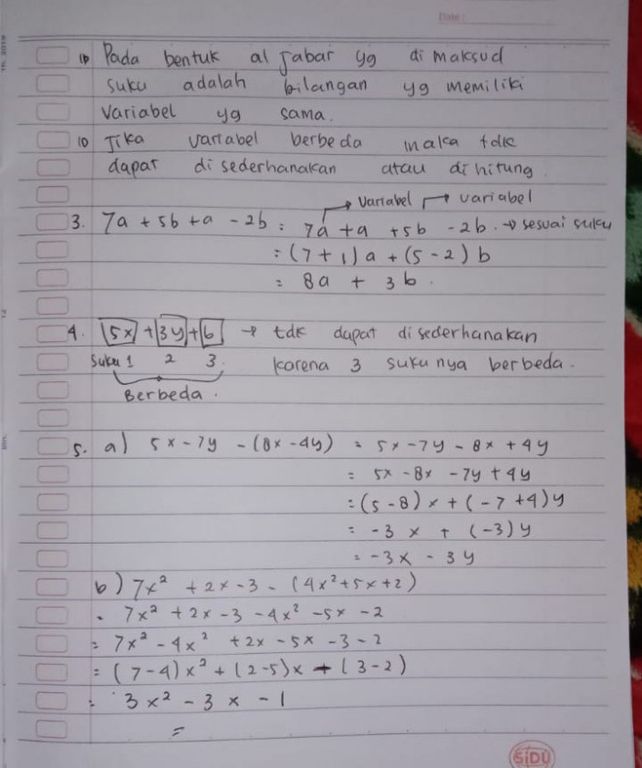 Date:
1) Pada bentuk al jabar yg di maksud
suku adalah bilangan yg memiliki
variabel yg sama.
10 Jika variabel berbeda maka tdk
dapat di sederhanakan atau di hitung
→ variabel → variabel
3. 7a + 5b + a - 2b = 7a + a + 5b - 2b. → sesuai suku
= (7 + 1) a + (5 - 2) b
= 8a + 3b.
4. 5x + 3y + 6 → tdk dapat di sederhanakan
Suku 1 2 3. karena 3 sukunya berbeda.
Berbeda.
5. a) 5x - 7y - (8x - 4y) = 5x - 7y - 8x + 4y
= 5x - 8x - 7y + 4y
= (5 - 8) x + (-7 + 4) y
= -3 x + (-3) y
= -3x - 3y
b) 7x² + 2x - 3 - (4x² + 5x + 2)
= 7x² + 2x - 3 - 4x² - 5x - 2
= 7x² - 4x² + 2x - 5x - 3 - 2
= (7 - 4) x² + (2 - 5) x + (3 - 2)
= 3x² - 3x - 1
=
SIDU